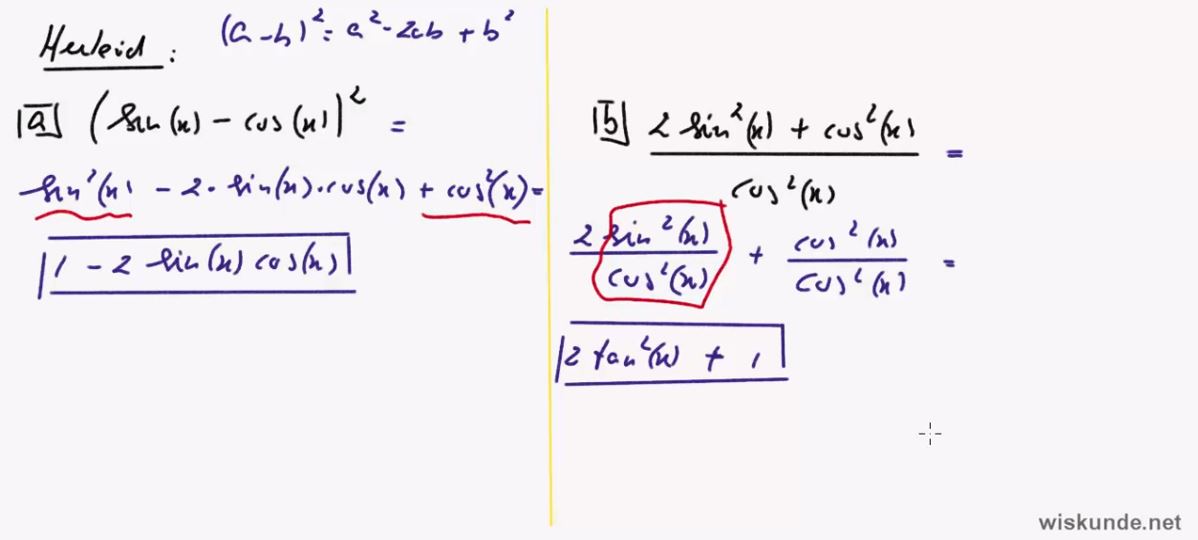 Herleid :
(a-b)² = a² - 2ab + b²
[a] (sin(x) - cos(x))² =
sin²(x) - 2·sin(x)·cos(x) + cos²(x) =
1 - 2 sin(x) cos(x)
[b] 2 sin²(x) + cos²(x) =
cos²(x)
2 sin²(x) + cos²(x) =
cos²(x) cos²(x)
2 tan²(x) + 1
wiskunde.net